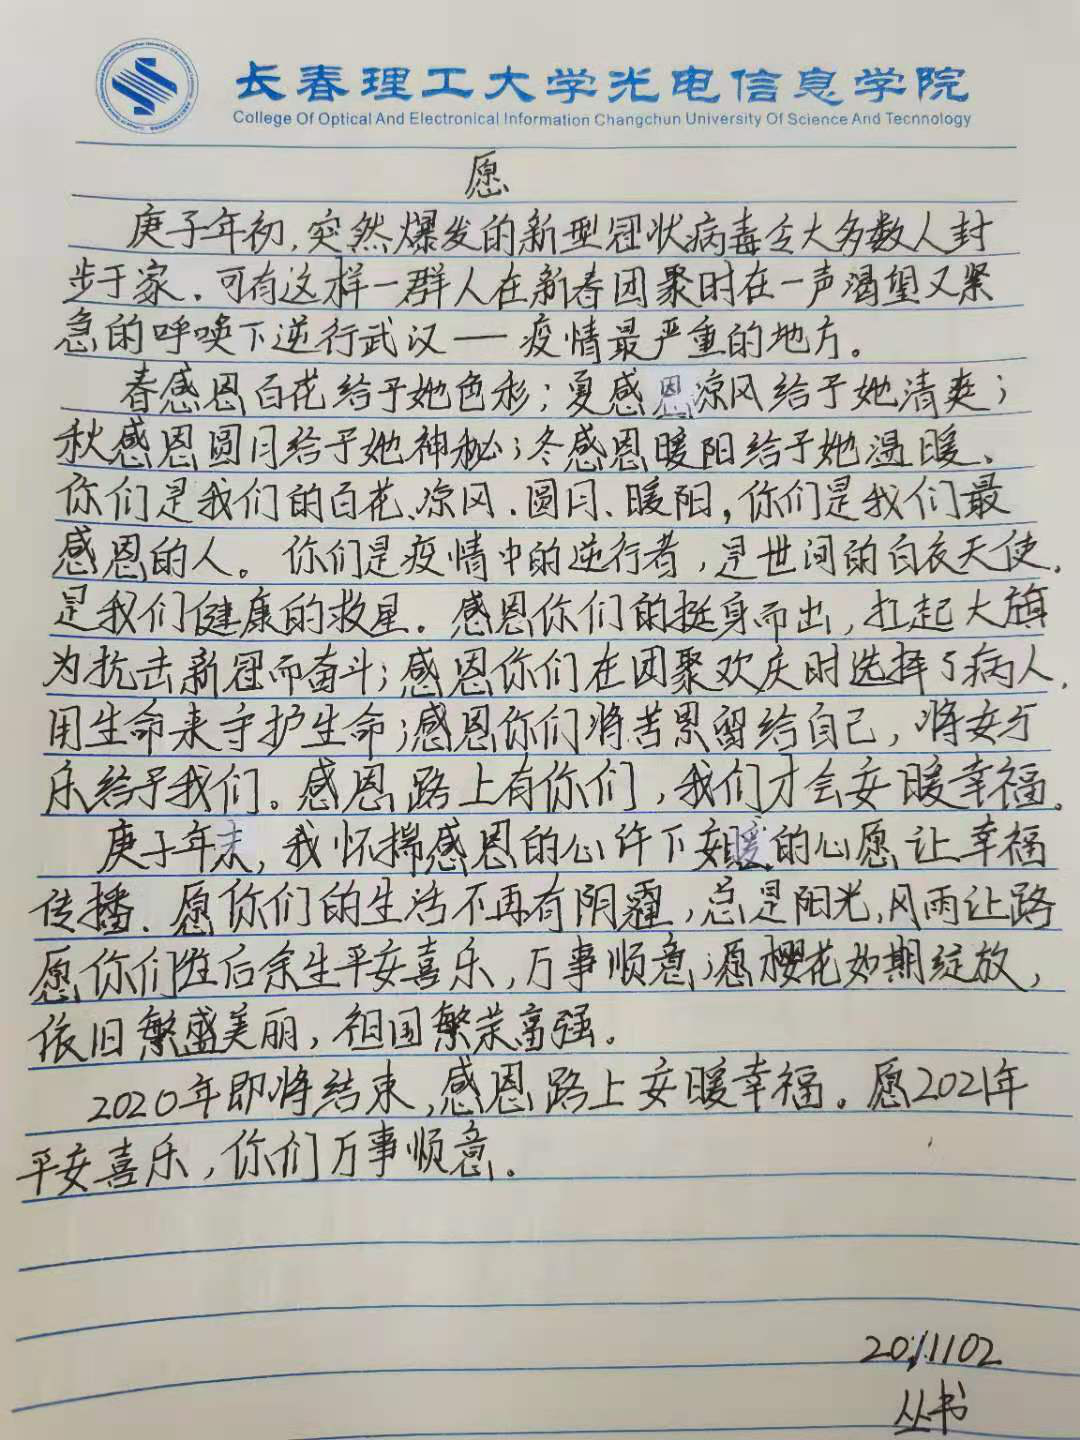 长春理工大学光电信息学院
College Of Optical And Electronical Information Changchun University Of Science And Tecnnology
愿
庚子年初,突然爆发的新型冠状病毒令大多数人封
步于家.可有这样一群人在新春团聚时在一声渴望又紧
急的呼唤下逆行武汉——疫情最严重的地方。
春感恩百花给予她色彩;夏感恩凉风给予她清爽;
秋感恩圆月给予她神秘;冬感恩暖阳给予她温暖、
你们是我们的百花、凉风、圆月、暖阳,你们是我们最
感恩的人。你们是疫情中的逆行者,是世间的白衣天使,
是我们健康的救星.感恩你们的挺身而出,扛起大旗
为抗击新冠而奋斗;感恩你们在团聚欢庆时选择了病人,
用生命来守护生命;感恩你们将苦累留给自己,将安
乐给予我们。感恩路上有你们,我们才会安暖幸福。
庚子年末,我怀揣感恩的心许下安暖的心愿让幸福
传播.愿你们的生活不再有阴霾,总是阳光,风雨让路
愿你们往后余生平安喜乐,万事顺意;愿樱花如期绽放,
依旧繁盛美丽,祖国繁荣富强。
2020年即将结束,感恩路上安暖幸福。愿2021年
平安喜乐,你们万事顺意.
丛书